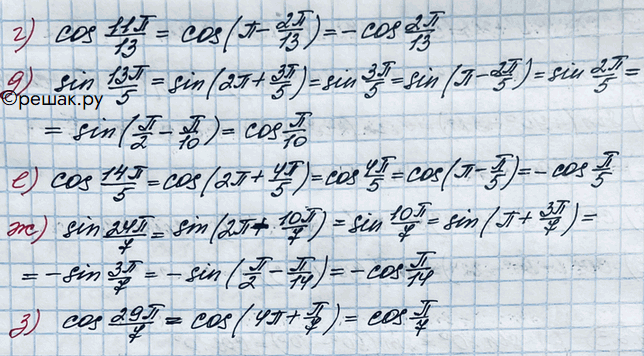 г) cos 11π/13 = cos(π - 2π/13) = -cos 2π/13
д) sin 13π/5 = sin(2π + 3π/5) = sin 3π/5 = sin(π - 2π/5) = sin 2π/5 =
©решак.ру
= sin(π/2 - π/10) = cos π/10
е) cos 14π/5 = cos(2π + 4π/5) = cos 4π/5 = cos(π - π/5) = -cos π/5
ж) sin 24π/7 = sin(2π + 10π/7) = sin 10π/7 = sin(π + 3π/7) =
= -sin 3π/7 = -sin(π/2 - π/14) = -cos π/14
з) cos 29π/7 = cos(4π + π/7) = cos π/7